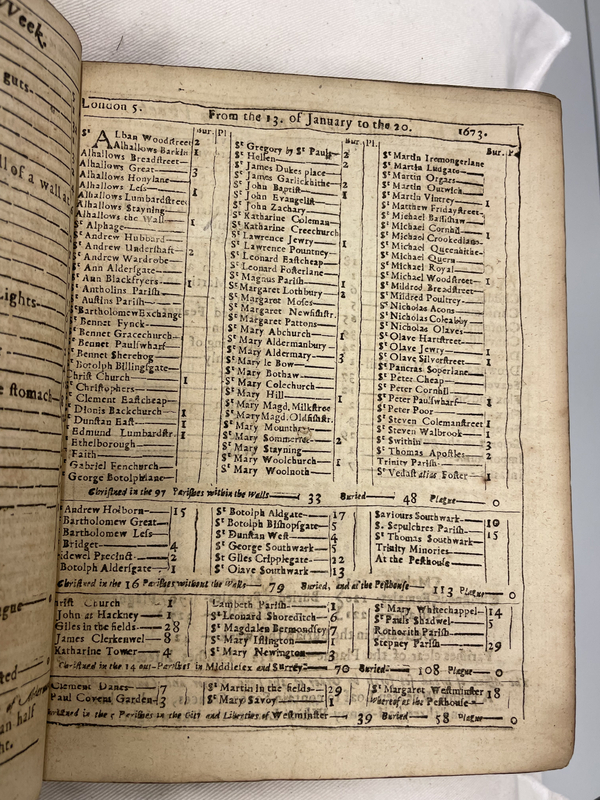 Week.
guts
ll of a wall
Lights
e stomach
gue
an half
London 5. From the 13. of January to the 20. 1673.
Bur. Pl
St Alban Woodstreet 2
Alhallows Barkin 1
Alhallows Breadstreet
Alhallows Great 3
Alhallows Honylane
Alhallows Less 1
Alhallows Lumbardstreet
Alhallows Stayning
Alhallows the Wall 1
St Alphage
St Andrew Hubbard
St Andrew Undershaft 2
St Andrew Wardrobe
St Ann Aldersgate
St Ann Blackfryers 1
St Antholins Parish
St Austins Parish
St Bartholomew Exchange
St Bennet Fynck
St Bennet Gracechurch
St Bennet Paulswharf
St Bennet Sherehog
St Botolph Billingsgate
Christ Church 1
St Christophers
St Clement Eastcheap
St Dionis Backchurch 1
St Dunstan East 1
Edmund Lumbardstr. 1
Ethelborough
Faith
Gabriel Fenchurch
George Botolphlane
Bur. Pl.
St Gregory by St Pauls 2
St Hellen 2
St James Dukes place
St James Garlickhithe 2
St John Baptist 1
St John Evangelist
St John Zachary
St Katharine Coleman
St Katharine Creechurch
St Lawrence Jewry 1
St Lawrence Pountney
St Leonard Eastcheap
St Leonard Fosterlane
St Magnus Parish 1
St Margaret Lothbury 2
St Margaret Moses
St Margaret Newfishstr.
St Margaret Pattons
St Mary Abchurch 1
St Mary Aldermanbury
St Mary Aldermary 3
St Mary le Bow
St Mary Bothaw
St Mary Colechurch
St Mary Hill 1
St Mary Magd. Milkstree
St Mary Magd. Oldfishstr.
St Mary Mounthaw
St Mary Sommerset 2
St Mary Stayning
St Mary Woolchurch 1
St Mary Woolnoth
Bur. P
St Martin Iremongerlane
St Martin Ludgate
St Martin Orgars
St Martin Outwich
St Martin Vintrey 1
St Matthew Fridaystreet
St Michael Bassishaw
St Michael Cornhil 1
St Michael Crookedlane
St Michael Queenhithe
St Michael Quern
St Michael Royal
St Michael Woodstreet 1
St Mildred Breadstreet
St Mildred Poultrey
St Nicholas Acons
St Nicholas Coleabby
St Nicholas Olaves
St Olave Hartstreet
St Olave Jewry 1
St Olave Silverstreet 1
St Pancras Soperlane
St Peter Cheap
St Peter Cornhil
St Peter Paulswharf 1
St Peter Poor
St Steven Colemanstreet 1
St Steven Walbrook 1
St Swithin 3
St Thomas Apostles 2
Trinity Parish
St Vedast alias Foster 1
Christned in the 97 Parishes within the Walls 33 Buried 48 Plague 0
Andrew Holborn 15
Bartholomew Great
Bartholomew Less
Bridget 4
idewel Precinct 2
Botolph Aldersgate 1
St Botolph Aldgate 17
St Botolph Bishopsgate 5
St Dunstan West 4
St George Southwark 5
St Giles Cripplegate 22
St Olave Southwark 13
Saviours Southwark 10
S. Sepulchres Parish 15
St Thomas Southwark
Trinity Minories
At the Pesthouse
Christned in the 16 Parishes without the Walls 79 Buried, and at the Pesthouse 113 Plague 0
hrist Church 1
John at Hackney 2
Giles in the fields 28
James Clerkenwel 8
Katharine Tower 4
Lambeth Parish 1
St Leonard Shoreditch 6
St Magdalen Bermondsey 7
St Mary Islington 1
St Mary Newington 3
St Mary Whitechappel 14
St Pauls Shadwel 5
Rothorith Parish
Stepney Parish 29
Christned in the 14 out-Parishes in Middlesex and Surrey 70 Buried 108 Plague 0
Clement Danes 7
Paul Covent Garden 3
St Martin in the fields 29
St Mary Savoy 1
St Margaret Westminster 18
Whereof at the Pesthouse
hristned in the 5 Parishes in the City and Liberties of Westminster 39 Buried 58 Plague 0